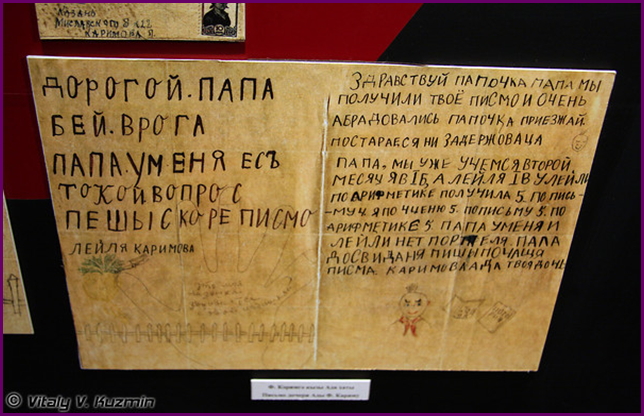 ЛОЗАНО
КАРИМОВА Я.
ДОРОГОЙ.ПАПА
БЕЙ.ВРОГА
ПАПА.УМЕНЯ ЕСЪ
ТОКОЙ ВОПРОС
ПЕШЫ СКОРЕ ПИСМО
ЛЕЙЛЯ КАРИМОВА
ЗДРАВСТВУЙ ПАПОЧКА ПАПА МЫ
ПОЛУЧИЛИ ТВОЁ ПИСМО И ОЧЕНЬ
АБРАДОВАЛИСЬ ПАПОЧКА ПРИЕЗЖАЙ
ПОСТАРАЕСЯ НИ ЗАДЕРЖОВАЦА
ПАПА. МЫ УЖЕ УЧЕМСЯ ВТОРОЙ.
МЕСЯЦ Я В IБ, А ЛЕЙЛЯ IВ У ЛЕЙЛИ
ПО АРИФМЕТИКЕ ПОЛУЧИЛА 5. ПО ПИСЬ-
МУ 4. Я ПО ЧЦЕНИЮ 5. ПО ПИСЬМУ 5. ПО
АРИФМЕТИКЕ 5 ПАПА УМЕНЯ И
ЛЕЙЛИ НЕТ ПОРТФЕЛЯ. ПАПА
ДОСВИДАНЯ ПИШЫ ПОЧАЩА
ПИСМА. КАРИМОВА АДА ТВОЯ ДОЧЬ
Ф. Кәримгә кызы Ада хаты
Письмо дочери Ады Ф. Кариму
© Vitaly V. Kuzmin